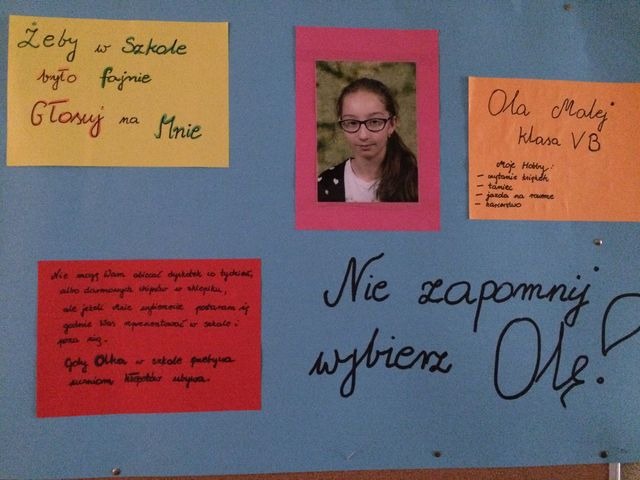 Żeby w Szkole
było fajnie
Głosuj na
Mnie
Ola Malej
klasa VB
Moje Hobby:
- czytanie książek
- taniec
- jazda na rowerze
- harcerstwo
Nie mogę Wam obiecać dyskotek co tydzień,
albo darmowych chipsów w sklepiku,
ale jeżeli mnie wybierzecie postaram się
godnie Was reprezentować w szkole i
poza nią.
Gdy Olka w szkole przebywa
uczniom kłopotów ubywa.
Nie zapomnij
wybierz Olę!